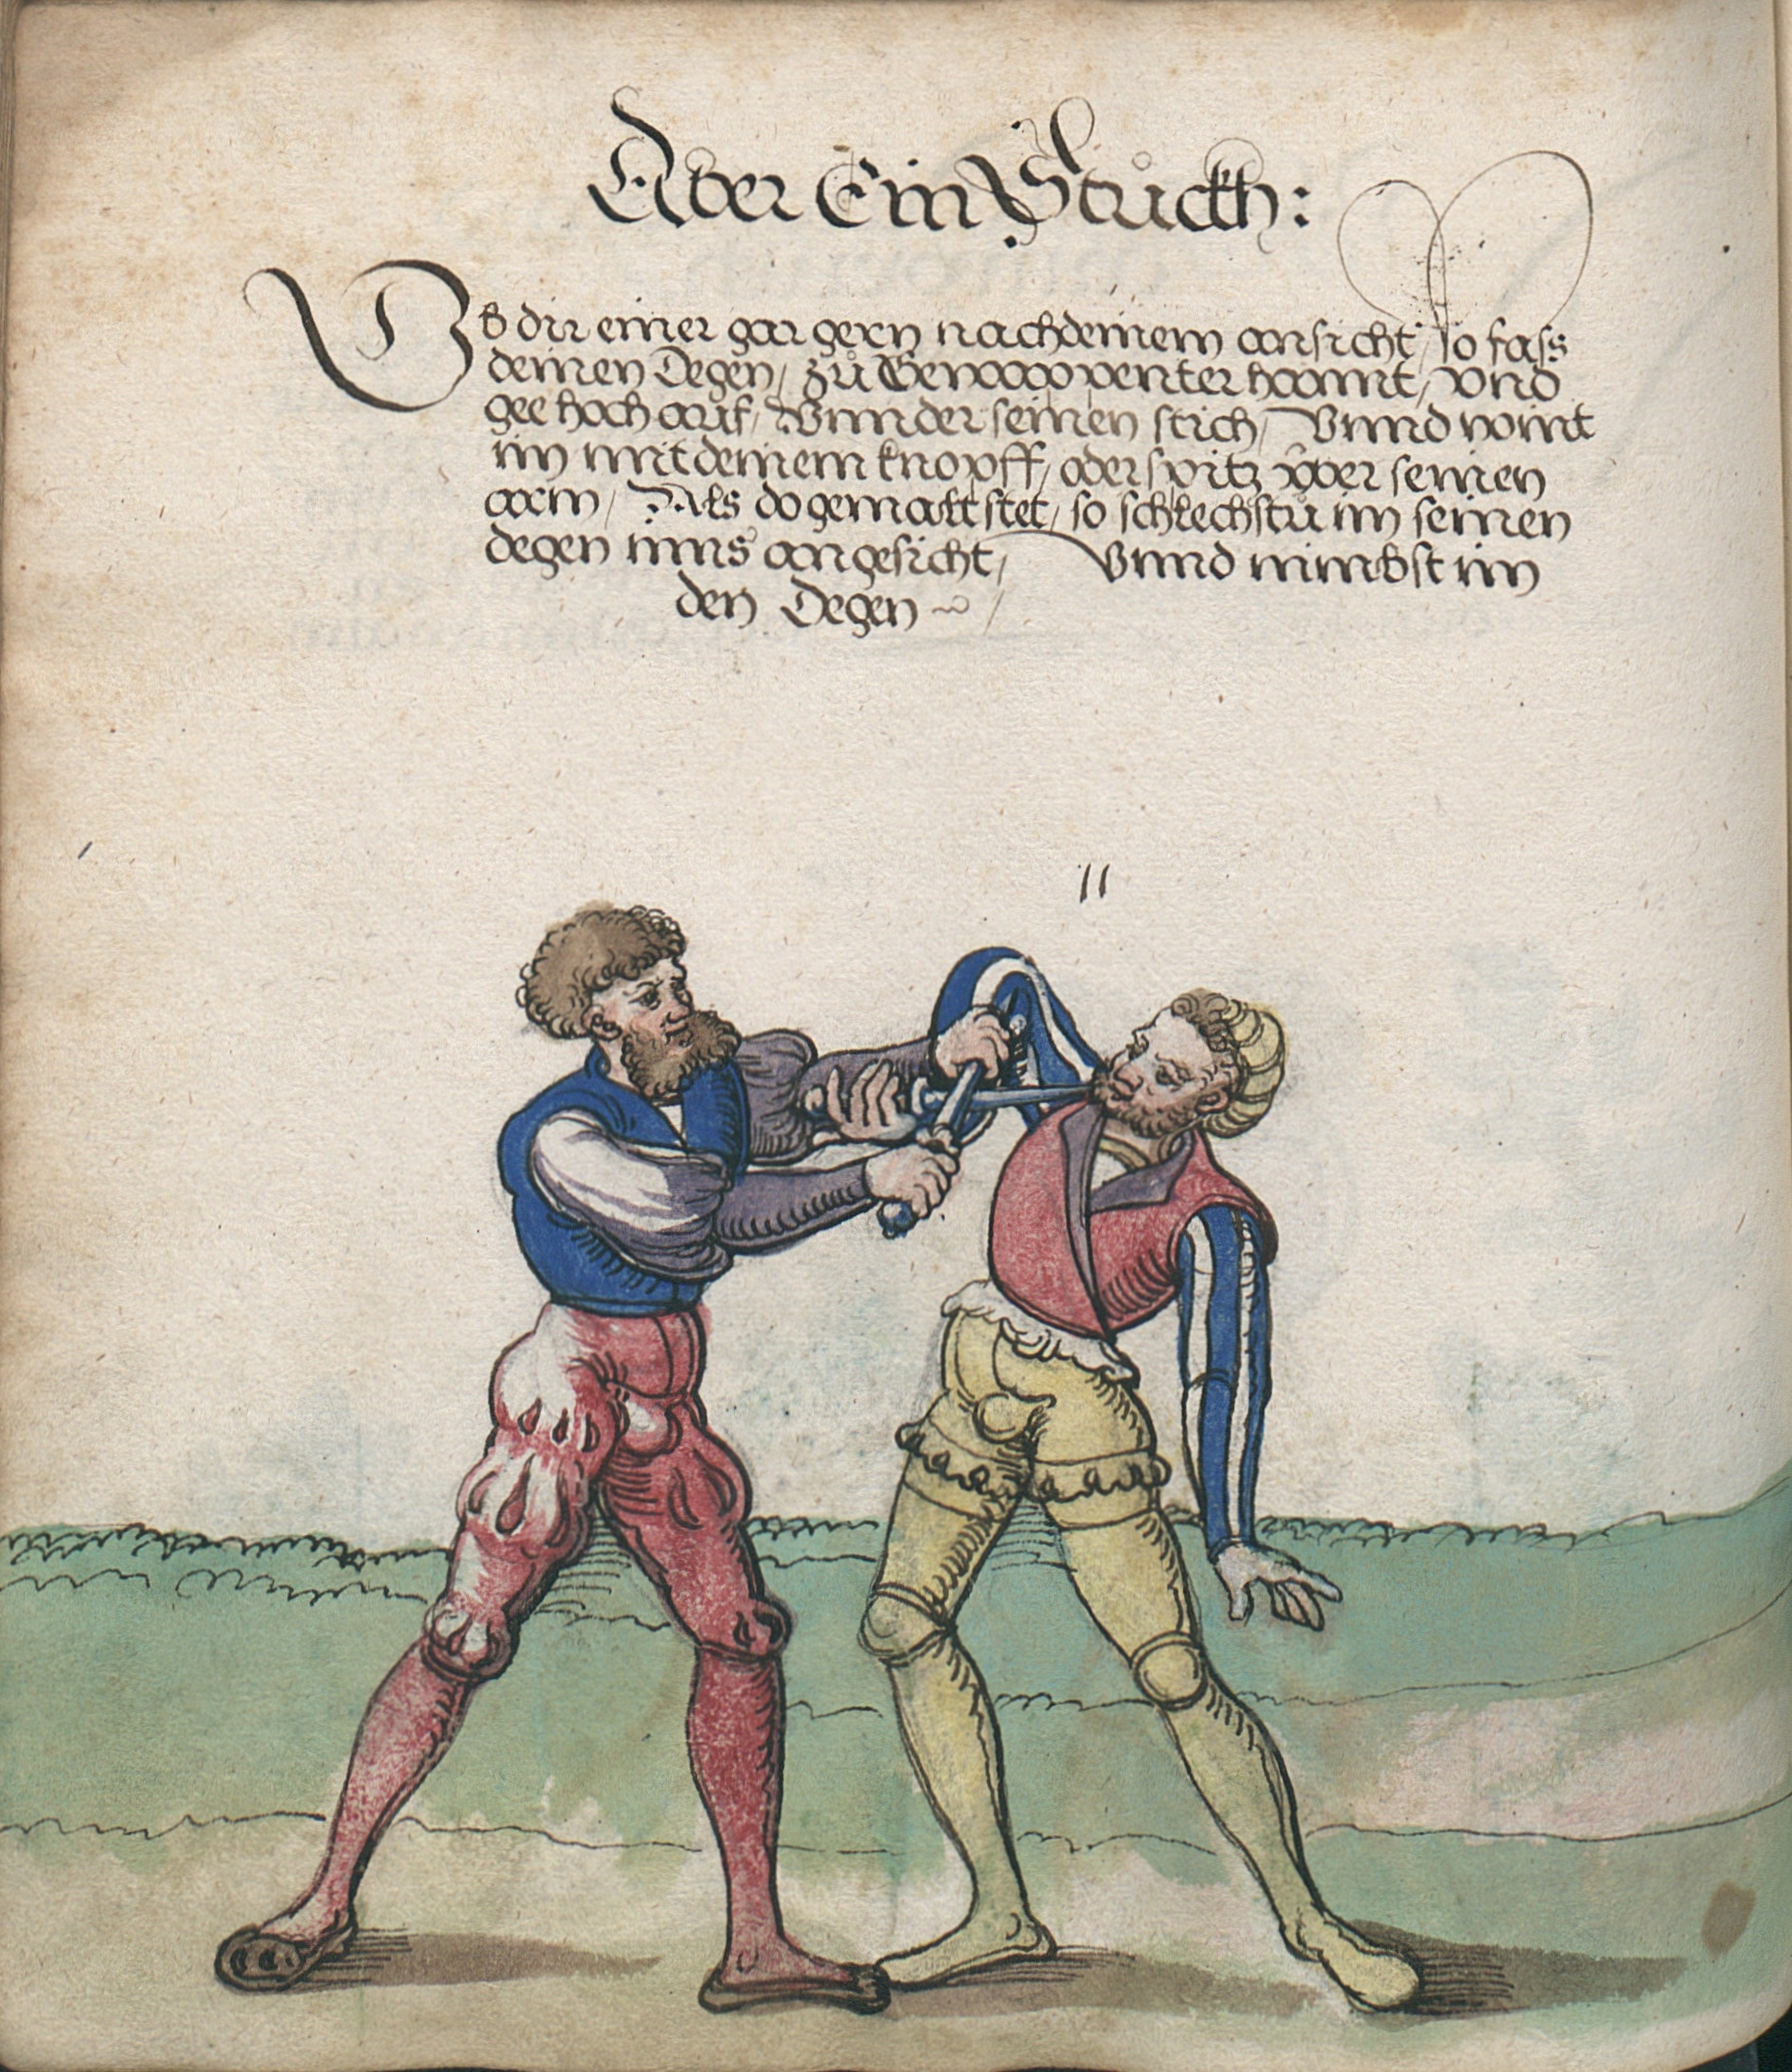 Aber Ein Stuckh:
Ob dir einer gar gern nach deinem ansicht, so fass
deinen Degen, zů Gewappenter hannt, vnd
gee hoch auf, Vnnder seinen stich, Vnnd wint
im mit deinem knopff, oder spitz vber seinen
arm, Als do gemalt stet, so schlechstu im seinen
degen inns angesicht, Vnnd nimbst im
den Degen
11